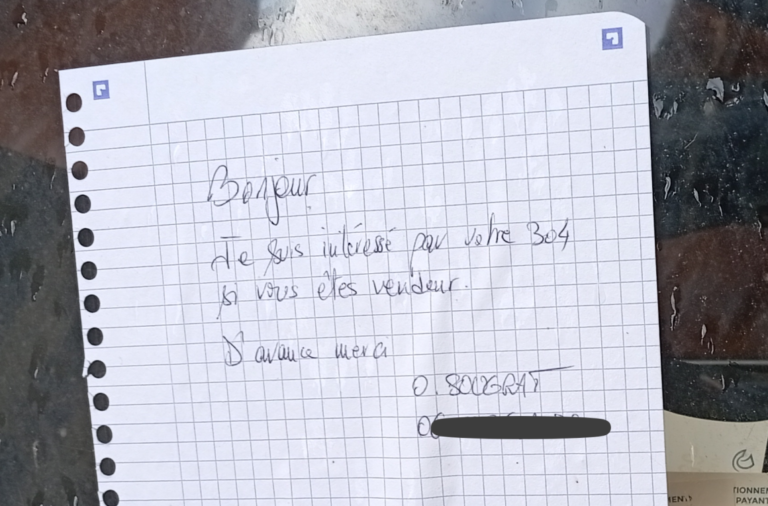 Bonjour
Je suis intéressé par votre 304
si vous êtes vendeur.
D'avance merci
O. SOUGRAT
06
TIONNE
PAYAN